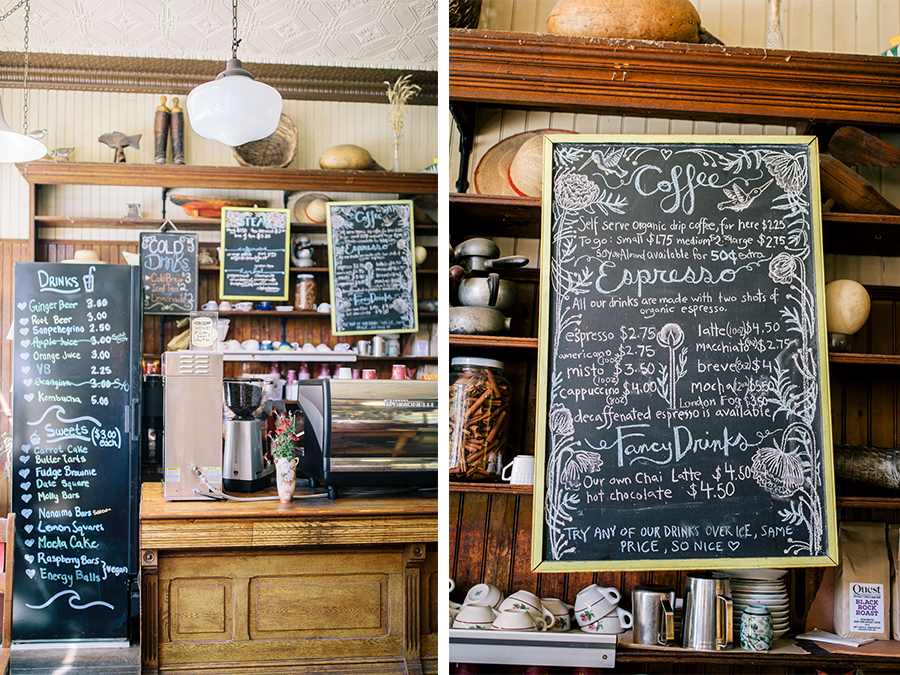 DRINKS
Ginger Beer 3.00
Root Beer 3.00
Sanpellegrino 2.50
Apple Juice 3.00
Orange Juice 3.00
V8 2.25
Orangina 3.50
Kombucha 5.00
Sweets ($3.00 each)
Carrot Cake
Butter Tarts
Fudge Brownie
Date Square
Molly Bars
Nanaimo Bars
Lemon Squares
Mocha Cake
Raspberry Bars
Energy Balls } vegan
COLD Drinks
Cold Brew
Iced Tea
Lemonade
TEA
Coffee
Espresso
Fancy Drinks
Coffee
Self serve organic drip coffee, for here $2.25
To go: Small $1.75 medium $2 large $2.75
Soy or Almond available for 50¢ extra
Espresso
All our drinks are made with two shots of
organic espresso.
espresso $2.75 latte (10oz) $4.50
americano (10oz) $2.75 macchiato (3oz) $3
misto (10oz) $3.50 breve (8oz) $4
cappuccino (8oz) $4.00 mocha (12oz) $5.50
London Fog $3.50
decaffenated espresso is available
Fancy Drinks
Our own Chai Latte $4.50
hot chocolate $4.50
TRY ANY OF OUR DRINKS OVER ICE, SAME
PRICE, SO NICE ♡
Quest
BLACK
ROCK
ROAST